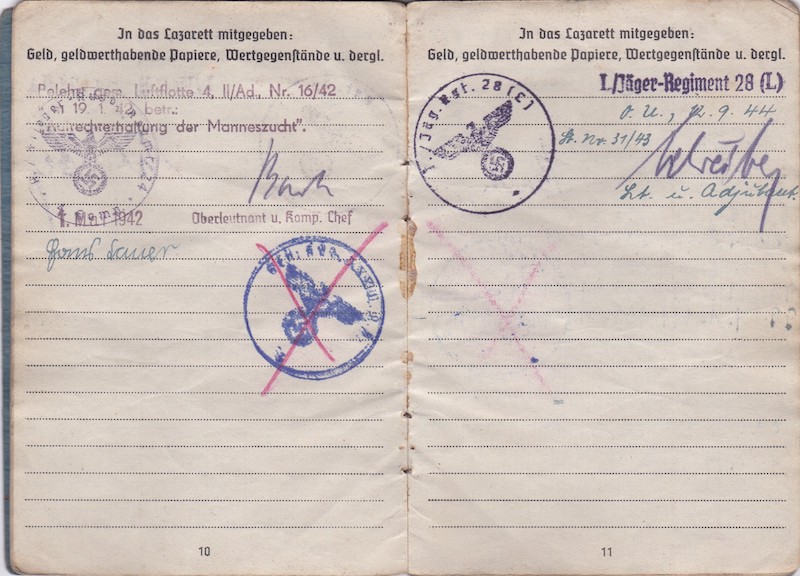 In das Lazarett mitgegeben:
Geld, geldwerthabende Papiere, Wertgegenstände u. dergl.
Belehrt gem. Luftflotte 4, II/Ad., Nr. 16/42
19.1.42 betr.:
"Aufrechterhaltung der Manneszucht".
1942
Oberleutnant u. Komp. Chef
Hans Lauer
10
In das Lazarett mitgegeben:
Geld, geldwerthabende Papiere, Wertgegenstände u. dergl.
I./Jäger-Regiment 28 (L)
I./Jäg. Rgt. 28 (L)
O.U., 12.9.44
St. Nr. 31/43
Lt. u. Adjutant.
11